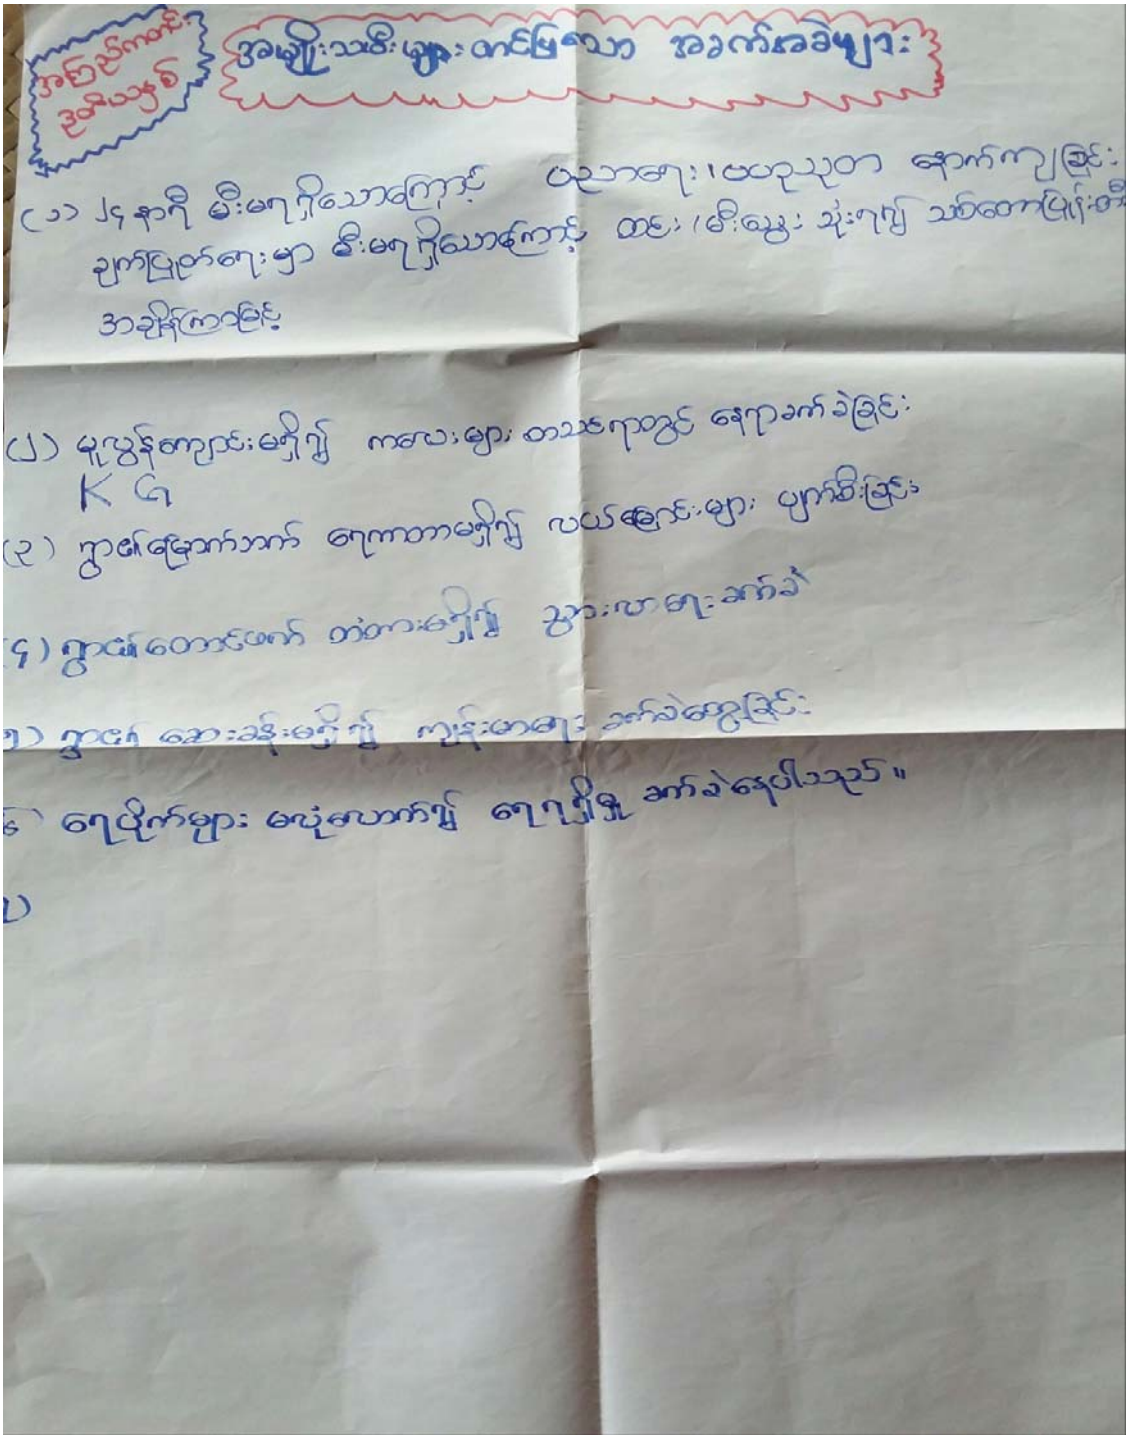 အကြည်ကတင်း
ဒုတိယနှစ်
အမျိုးသမီးများ တင်ပြသော အခက်အခဲများ
(၁) ၂၄ နာရီ မီးမရရှိသောကြောင့် ပညာရေး၊ ဗဟုသုတ နောက်ကျခြင်း
ချက်ပြုတ်ရေးမှာ မီးမရရှိသောကြောင့် ထင်း/မီးသွေး သုံးရ၍ သစ်တောပြုန်းတီး
အချိန်ကြာမြင့်
(၂) မူလွန်ကျောင်းမရှိ၍ ကလေးများ စာသင်ရာတွင် နေရာခက်ခဲခြင်း
KG
(၃) ရွာ၏မြောက်ဘက် ရေကာတာမရှိ၍ လယ်မြောင်းများ ပျက်စီးခြင်း
၄) ရွာ၏တောင်ဖက် တံတားမရှိ၍ သွားလာရေးခက်ခဲ
၅) ရွာ၏ ဆေးခန်းမရှိ၍ ကျန်းမာရေး ခက်ခဲတွေ့ခြင်း
၆) ရေပိုက်များ မလုံလောက်၍ ရေရရှိမှု ခက်ခဲနေပါသည်။